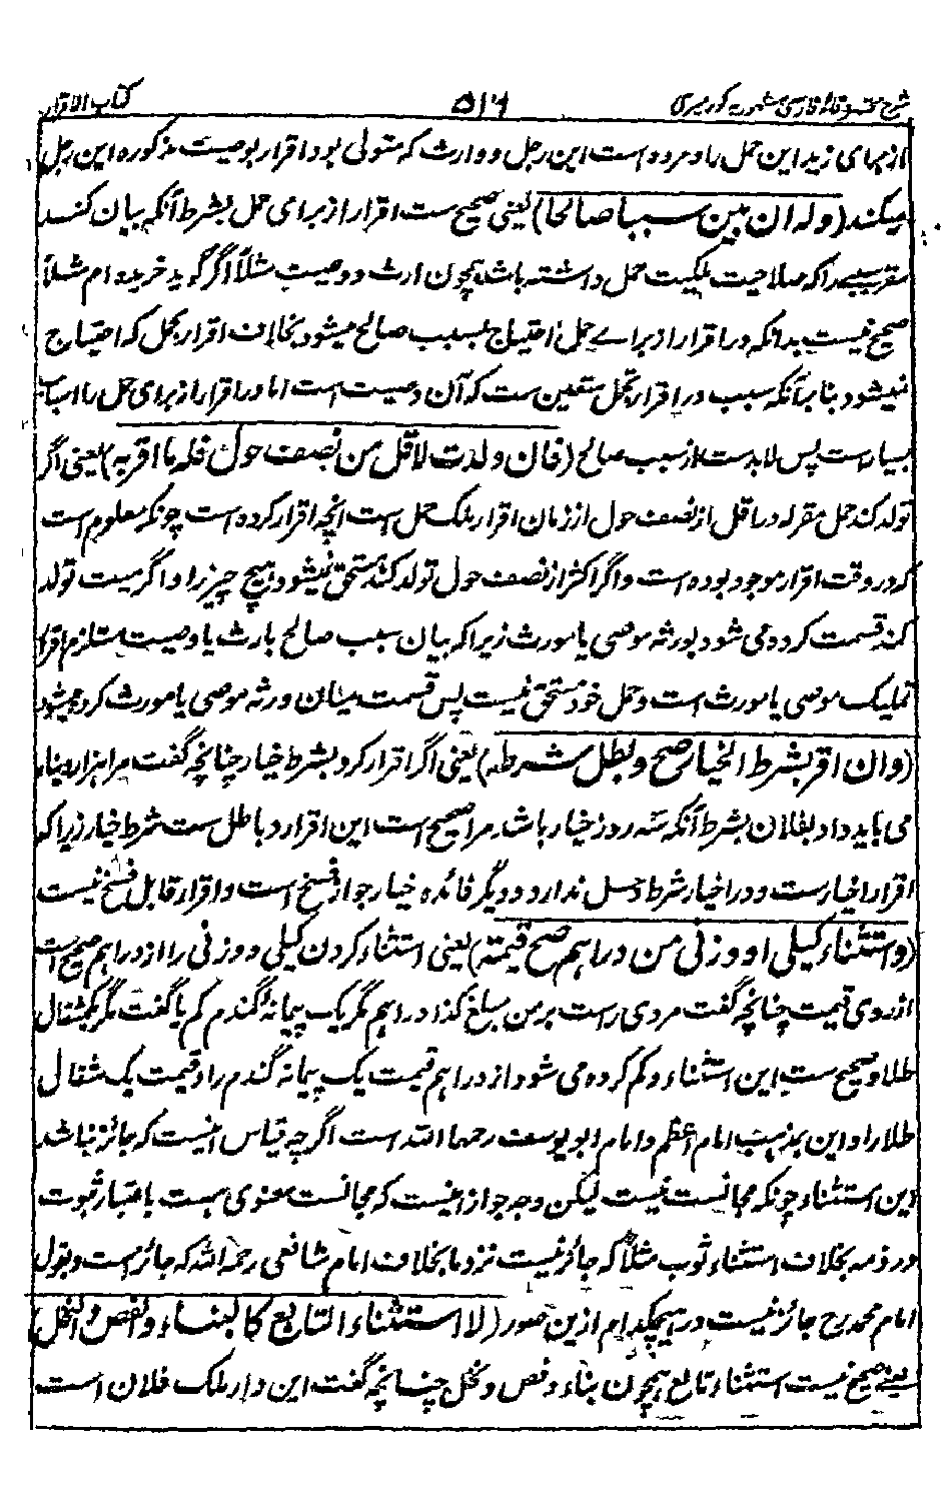 شرح مختصر وقایه فارسی مشهور به کور میری ۵۱۶ کتاب الاقرار
از بهای زید این حمل را و مرده است این رجل و وارث که متولی بود اقرار بوصیت مذکوره این رجل
میکند (وله ان بین سببا صالحا) یعنی صحیح ست اقرار از برای حمل بشرط آنکه بیان کند
مقر سببے را که صلاحیت ملکیت حمل داشته باشد همچون ارث و وصیت مثلاً اگر گوید خریده ام مثلاً
صحیح نیست بدانکه در اقرار از براے حمل احتیاج بسبب صالح میشود بخلاف اقرار بحمل که احتیاج
نمیشود بنا بر آنکه سبب در اقرار بحمل متعین ست که آن وصیت است اما در اقرار از برای حمل را اسباب
بسیار ست پس لابد ست از سبب صالح (فان ولدت لاقل من نصف حول فله ما اقر به) یعنی اگر
تولد کند حمل مقر له در اقل از نصف حول از زمان اقرار ملک حمل است انچه اقرار کرده است چونکه معلوم است
که در وقت اقرار موجود بوده است و اگر اکثر از نصف حول تولد کند مستحق نمیشود هیچ چیز را و اگر میت تولد
کند قسمت کرده می شود بورثه موصی یا مورث زیرا که بیان سبب صالح بارث یا وصیت مستلزم اقرار
تملیک موصی یا مورث است و حمل خود مستحق نیست پس قسمت میان ورثه موصی یا مورث کرده میشود
(وان اقر بشرط الخیار صح وبطل شرطه) یعنی اگر اقرار کرد بشرط خیار چنانچه گفت مرا هزار دینار
می باید داد بفلان بشرط آنکه سه روز خیار باشد مرا صحیح است این اقرار و باطل ست شرط خیار زیرا که
اقرار اخبار ست و در اخبار شرط دخل ندارد و دیگر فائده خیار جواز فسخ است و اقرار قابل فسخ نیست
(واستثناء کیلی او وزنی من دراهم صح قیمة) یعنی استثناء کردن کیلی و وزنی را از دراهم صحیح است
از روی قیمت چنانچه گفت مردی راست بر من مبلغ کذا دراهم مگر یک پیمانه گندم کم یا گفت مگر یکمثقال
طلا و صحیح ست این استثناء و کم کرده می شود از دراهم قیمت یک پیمانه گندم را و قیمت یک مثقال
طلا را و این بمذهب امام اعظم و امام ابو یوسف رحمهما الله است اگر چه قیاس اینست که جائز نباشد
این استثناء چونکه مجانست نیست لیکن وجه جواز اینست که مجانست معنوی هست باعتبار ثبوت
در ذمه بخلاف استثناء ثوب مثلاً که جائز نیست نزد ما بخلاف امام شافعی رحمه الله که جائز است و بقول
امام محمد رح جائز نیست در هیچکدام ازین صور (لا استثناء التابع کالبناء والفص والنخل)
یعنے صحیح نیست استثناء تابع همچون بناء و فص و نخل چنانچه گفت این دار ملک فلان است